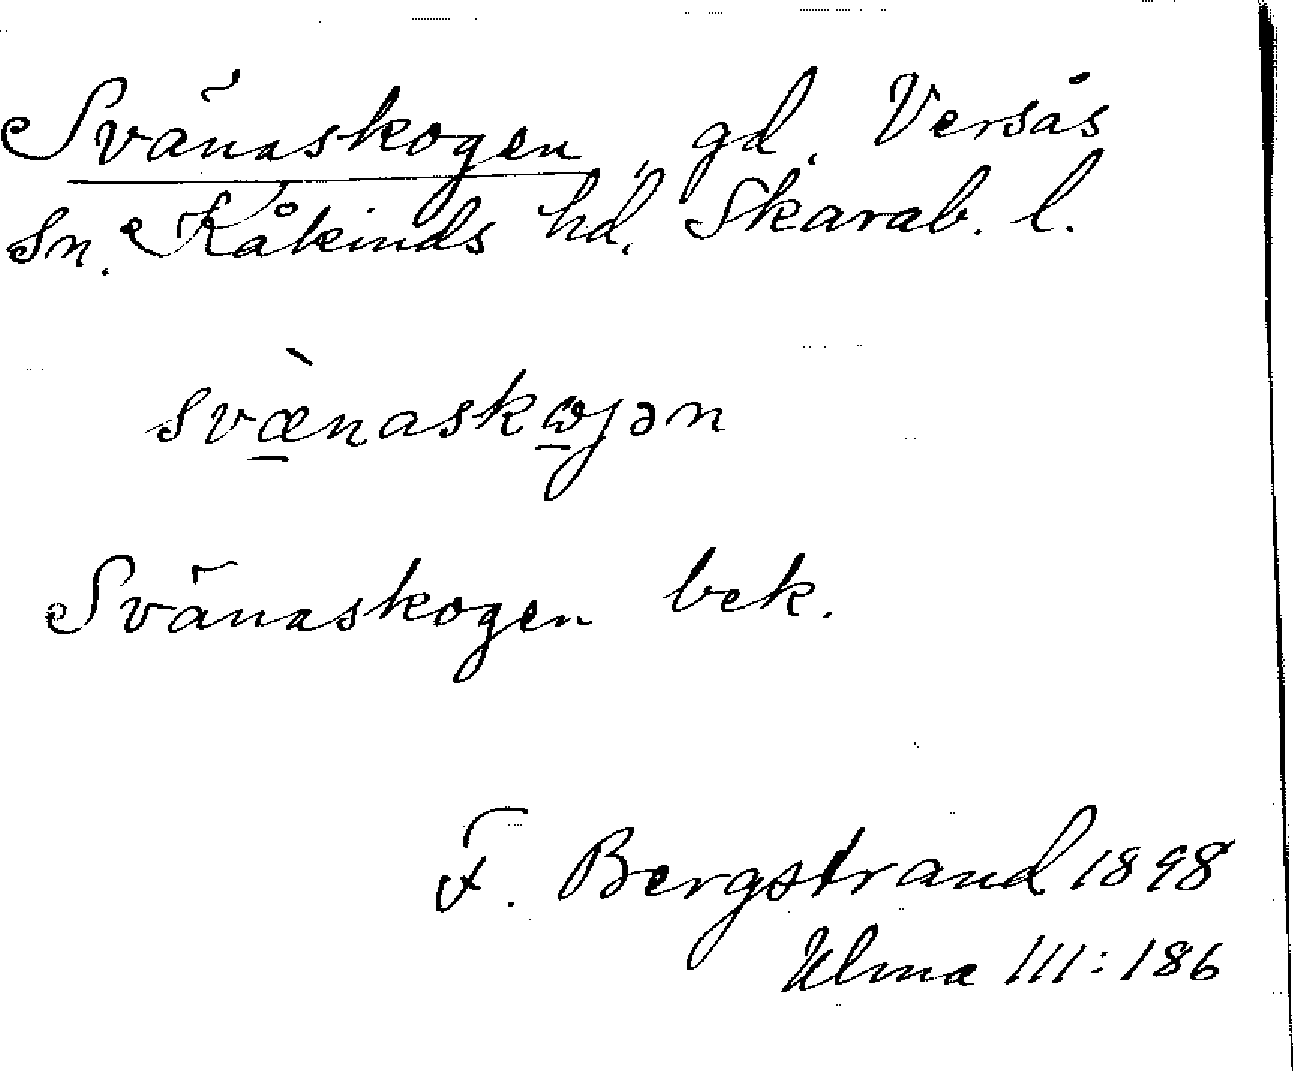 Svänaskogen, gd. Versås
sn. Kåkinds hd. Skarab. l.
svæ̠̀naskω̠jən
Svänaskogen bek.
F. Bergstrand 1898
Ulma 111:186